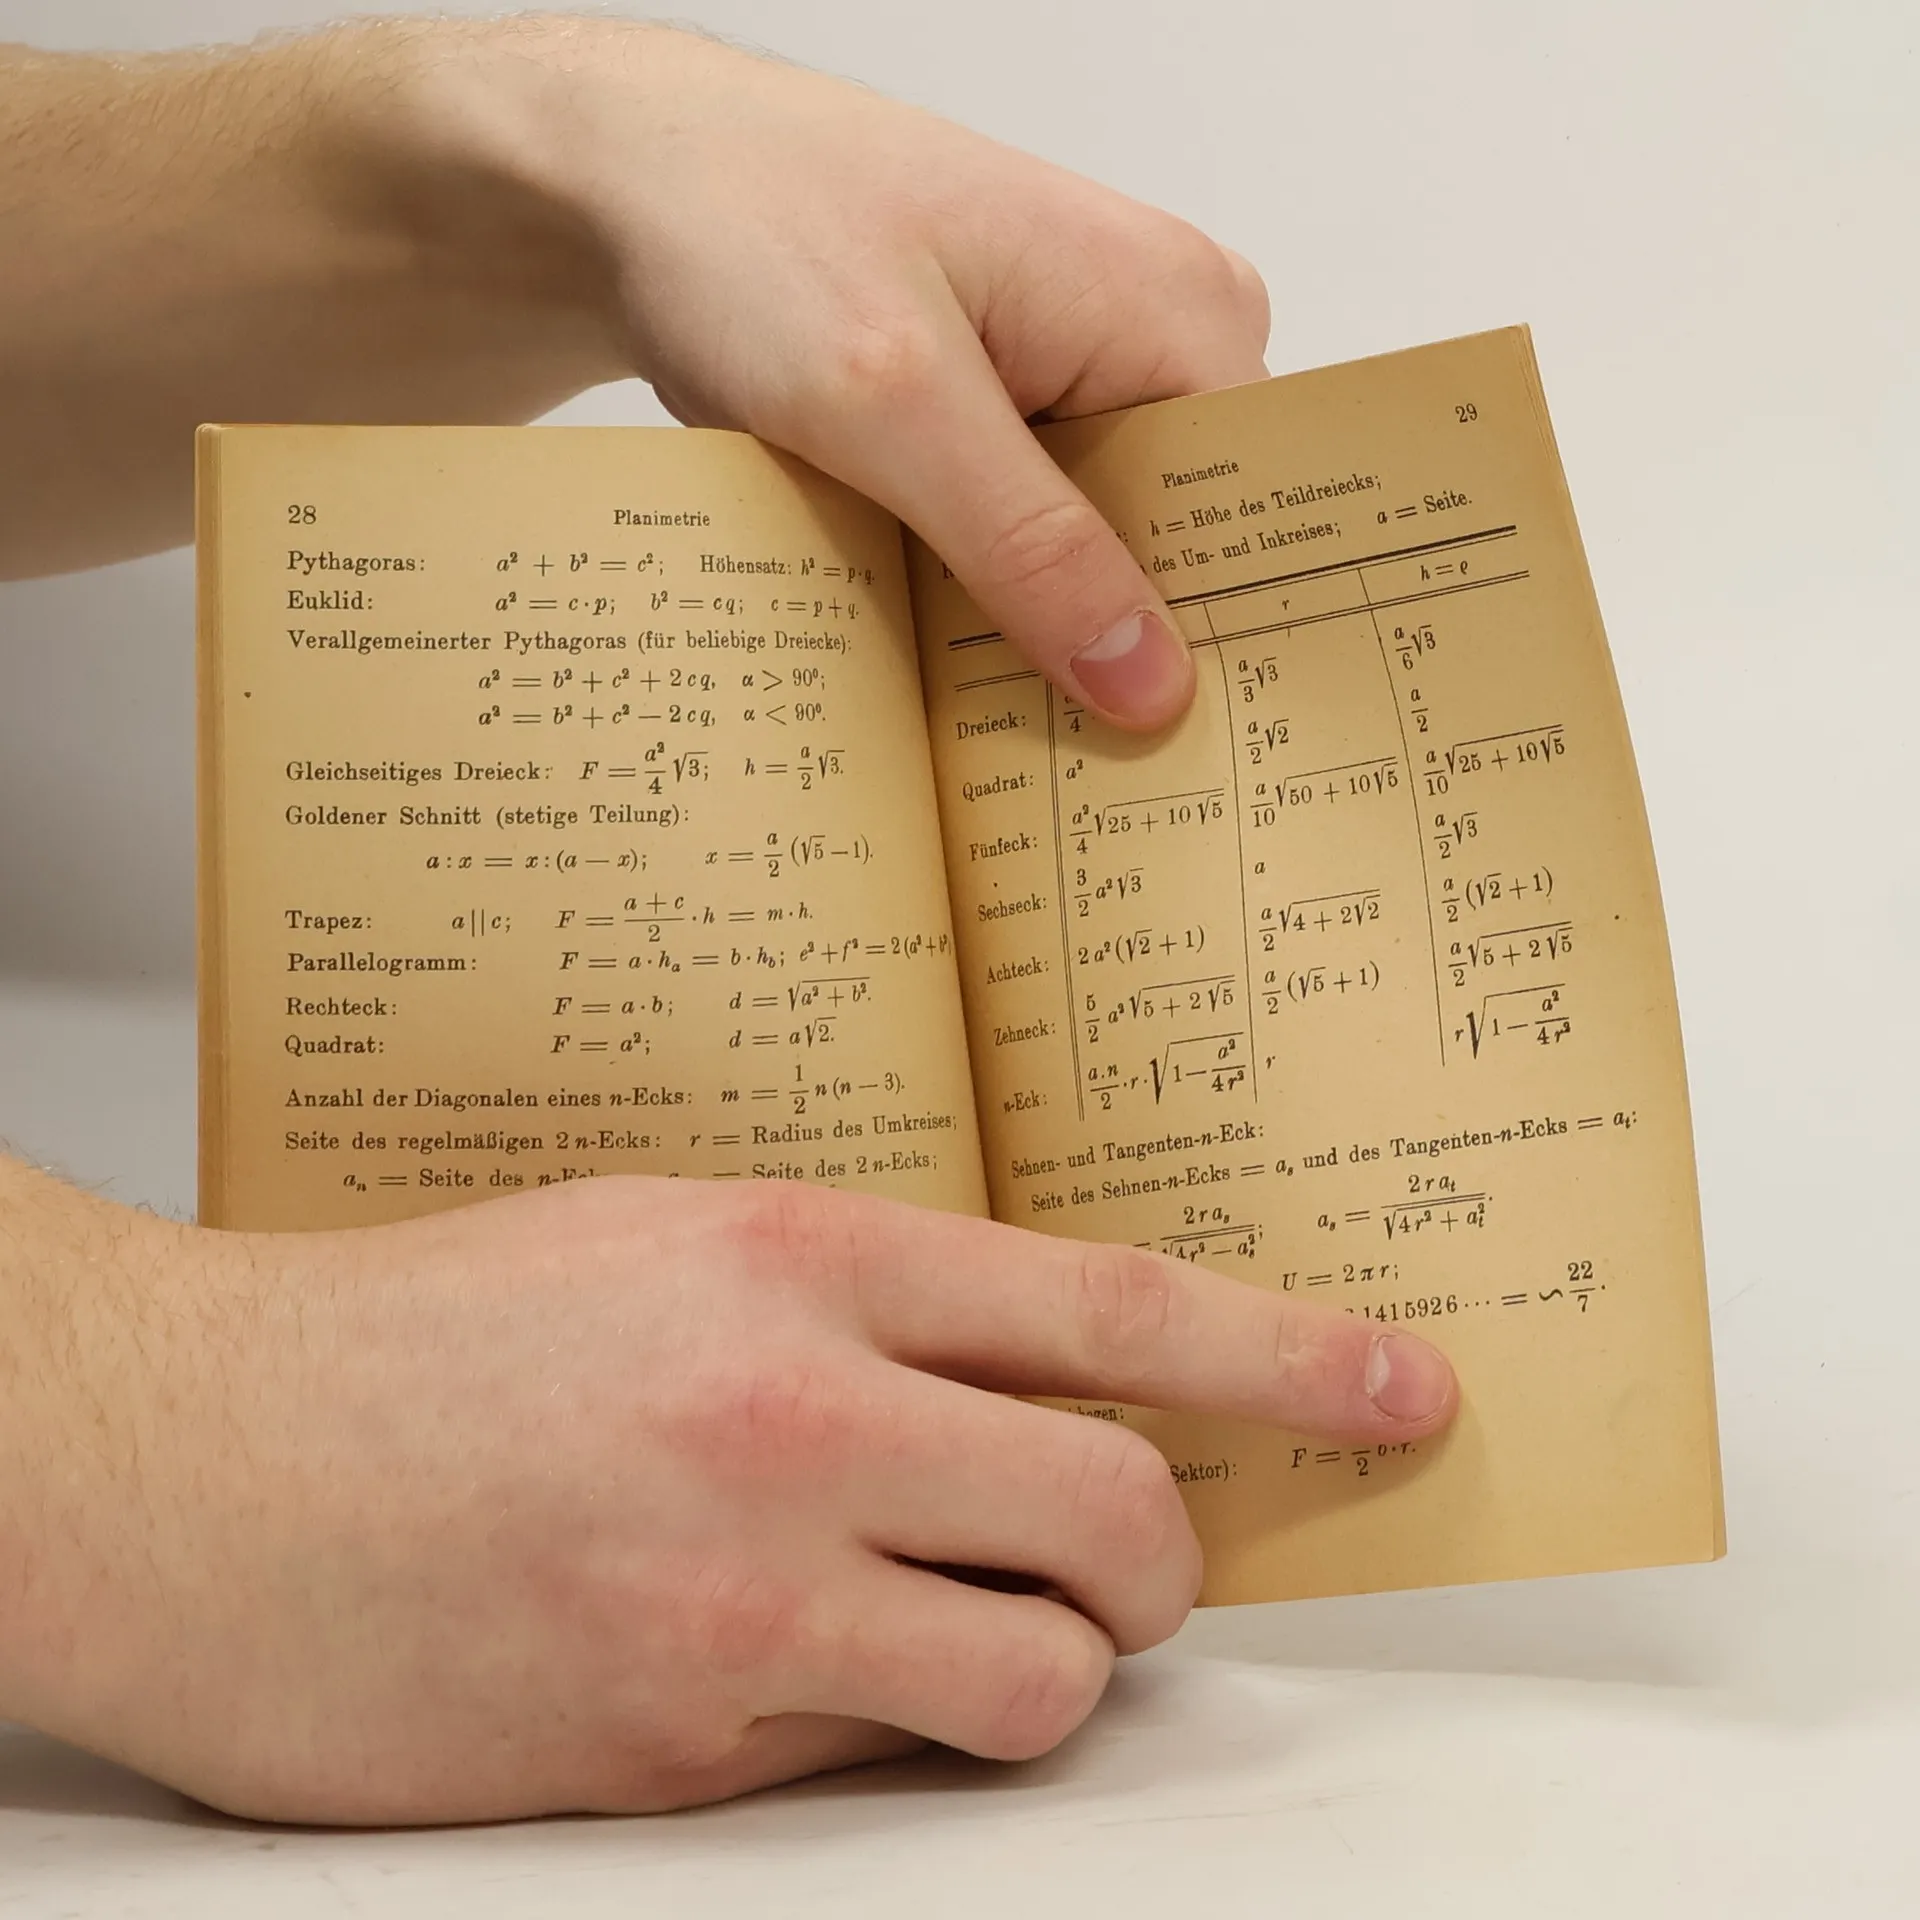 28 Planimetrie
Pythagoras: a² + b² = c²; Höhensatz: h² = p·q.
Euklid: a² = c·p; b² = cq; c = p+q.
Verallgemeinerter Pythagoras (für beliebige Dreiecke):
a² = b² + c² + 2cq, α > 90⁰;
a² = b² + c² − 2cq, α < 90⁰.
Gleichseitiges Dreieck: F = a²/4 √3; h = a/2 √3.
Goldener Schnitt (stetige Teilung):
a : x = x : (a − x); x = a/2 (√5 − 1).
Trapez: a || c; F = (a + c)/2 · h = m·h.
Parallelogramm: F = a·hₐ = b·h_b; e² + f² = 2(a² + b²)
Rechteck: F = a·b; d = √(a² + b²).
Quadrat: F = a²; d = a√2.
Anzahl der Diagonalen eines n-Ecks: m = 1/2 n (n − 3).
Seite des regelmäßigen 2n-Ecks: r = Radius des Umkreises;
aₙ = Seite des = Seite des 2n-Ecks;
29
Planimetrie
h = Höhe des Teildreiecks;
des Um- und Inkreises; a = Seite.
r h = ϱ
Dreieck: a/3 √3 a/6 √3
Quadrat: a² a/2 √2 a/2
Fünfeck: a²/4 √(25 + 10√5) a/10 √(50 + 10√5) a/10 √(25 + 10√5)
Sechseck: 3/2 a²√3 a a/2 √3
Achteck: 2a²(√2 + 1) a/2 √(4 + 2√2) a/2 (√2 + 1)
Zehneck: 5/2 a²√(5 + 2√5) a/2 (√5 + 1) a/2 √(5 + 2√5)
n-Eck: a.n/2 · r · √(1 − a²/4r²) r r√(1 − a²/4r²)
Sehnen- und Tangenten-n-Eck:
Seite des Sehnen-n-Ecks = aₛ und des Tangenten-n-Ecks = aₜ:
= 2raₛ/√(4r² − aₛ²); aₛ = 2raₜ/√(4r² + aₜ²).
U = 2πr;
1415926··· = ∽ 22/7.
Sektor): F = /2 b·r.